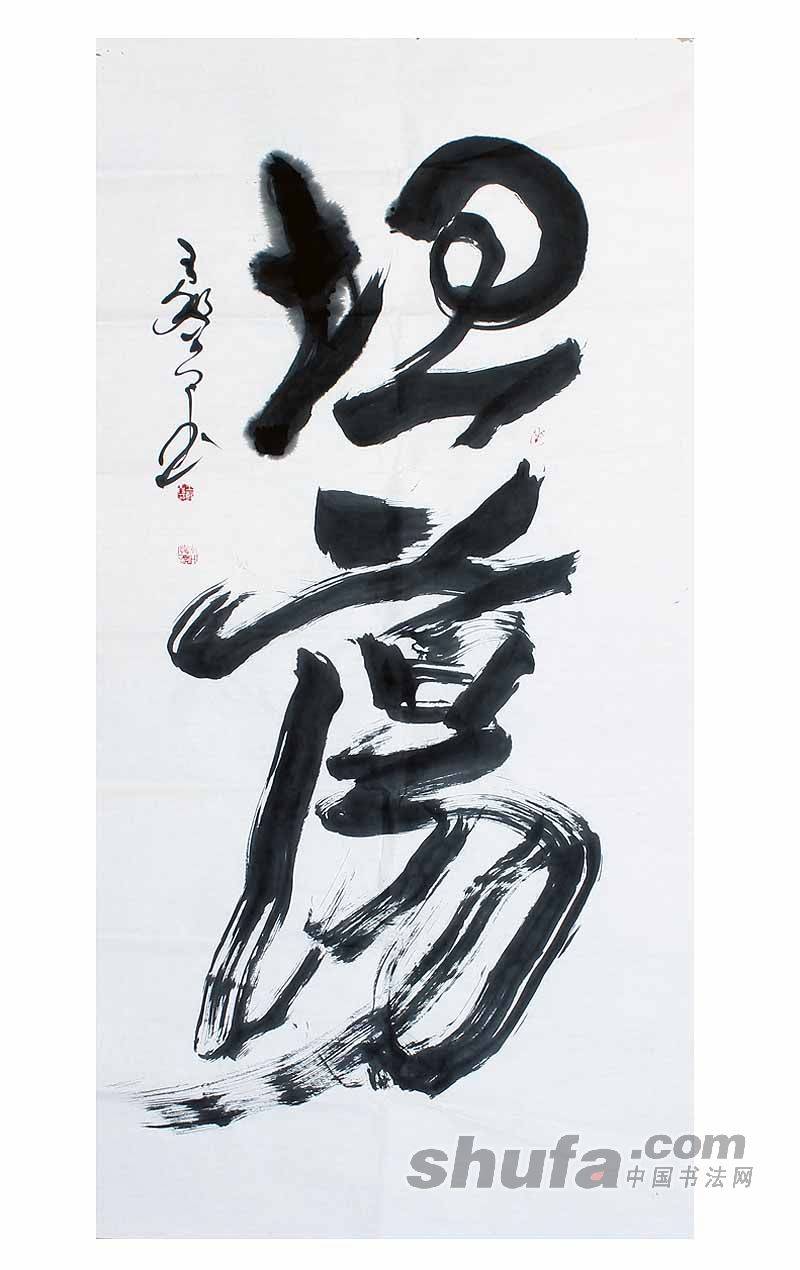 坦蕩
shufa.com
中国书法网